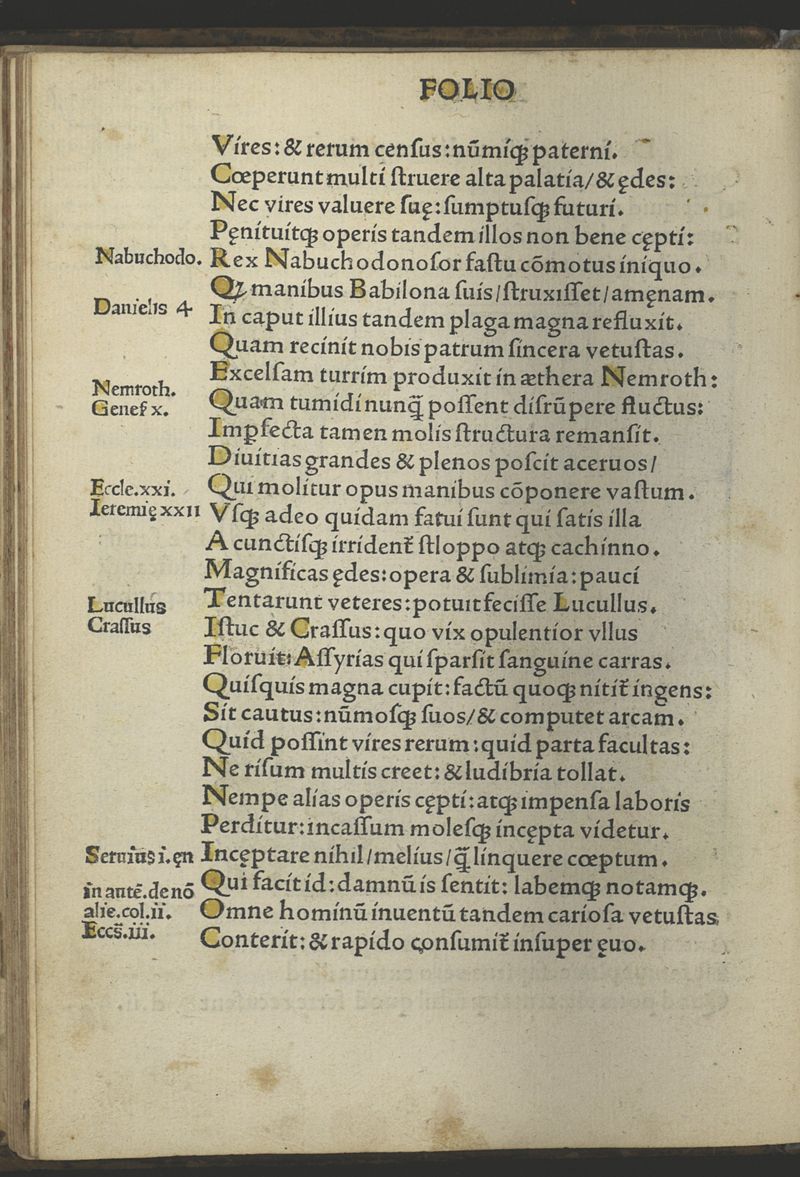 FOLIO
Vires: & rerum cenſus: nūmiqꝫ paterni.
Cœperunt multi ſtruere alta palatia/ & ędes:
Nec vires valuere ſuę: ſumptuſqꝫ futuri.
Pęnituitqꝫ operis tandem illos non bene cępti:
Nabuchodo. Rex Nabuchodonoſor faſtu cōmotus iniquo.
Qꝫ manibus Babilona ſuis/ ſtruxiſſet/ amęnam.
Danielis 4 In caput illius tandem plaga magna refluxit.
Quam recinit nobis patrum ſincera vetuſtas.
Excelſam turrim produxit in æthera Nemroth:
Nemroth.
Geneſ x. Quam tumidi nunq̄ poſſent diſrūpere fluctus:
Imꝑfecta tamen molis ſtructura remanſit.
Diuitias grandes & plenos poſcit aceruos/
Eccle.xxi. Qui molitur opus manibus cōponere vaſtum.
Ieremię xxII Vſqꝫ adeo quidam fatui ſunt qui ſatis illa
A cunctiſqꝫ irridenť ſtloppo atqꝫ cachinno.
Magnificas ędes: opera & ſublimia: pauci
Lucullus Tentarunt veteres: potuit feciſſe Lucullus.
Craſſus Iſtuc & Craſſus: quo vix opulentior vllus
Floruit: Aſſyrias qui ſparſit ſanguine carras.
Quiſquis magna cupit: factū quoqꝫ nitiť ingens:
Sit cautus: nūmoſqꝫ ſuos/ & computet arcam.
Quid poſſint vires rerum: quid parta facultas:
Ne riſum multis creet: & ludibria tollat.
Nempe alias operis cępti: atqꝫ impenſa laboris
Perditur: incaſſum moleſqꝫ incępta videtur.
Seruius i. ęn Incęptare nihil/ melius/ q̄ linquere cœptum.
in antē.denō Qui facit id: damnū is ſentit: labemqꝫ notamqꝫ.
alie.col.ii. Omne hominū inuentū tandem carioſa vetuſtas
Eccs̄.iii. Conterit: & rapido conſumiť inſuper ęuo.